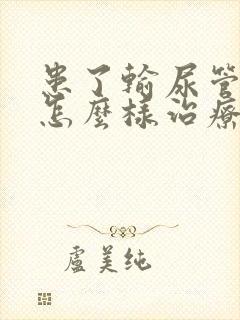 患了輸尿管
怎麼樣治療
盧美純